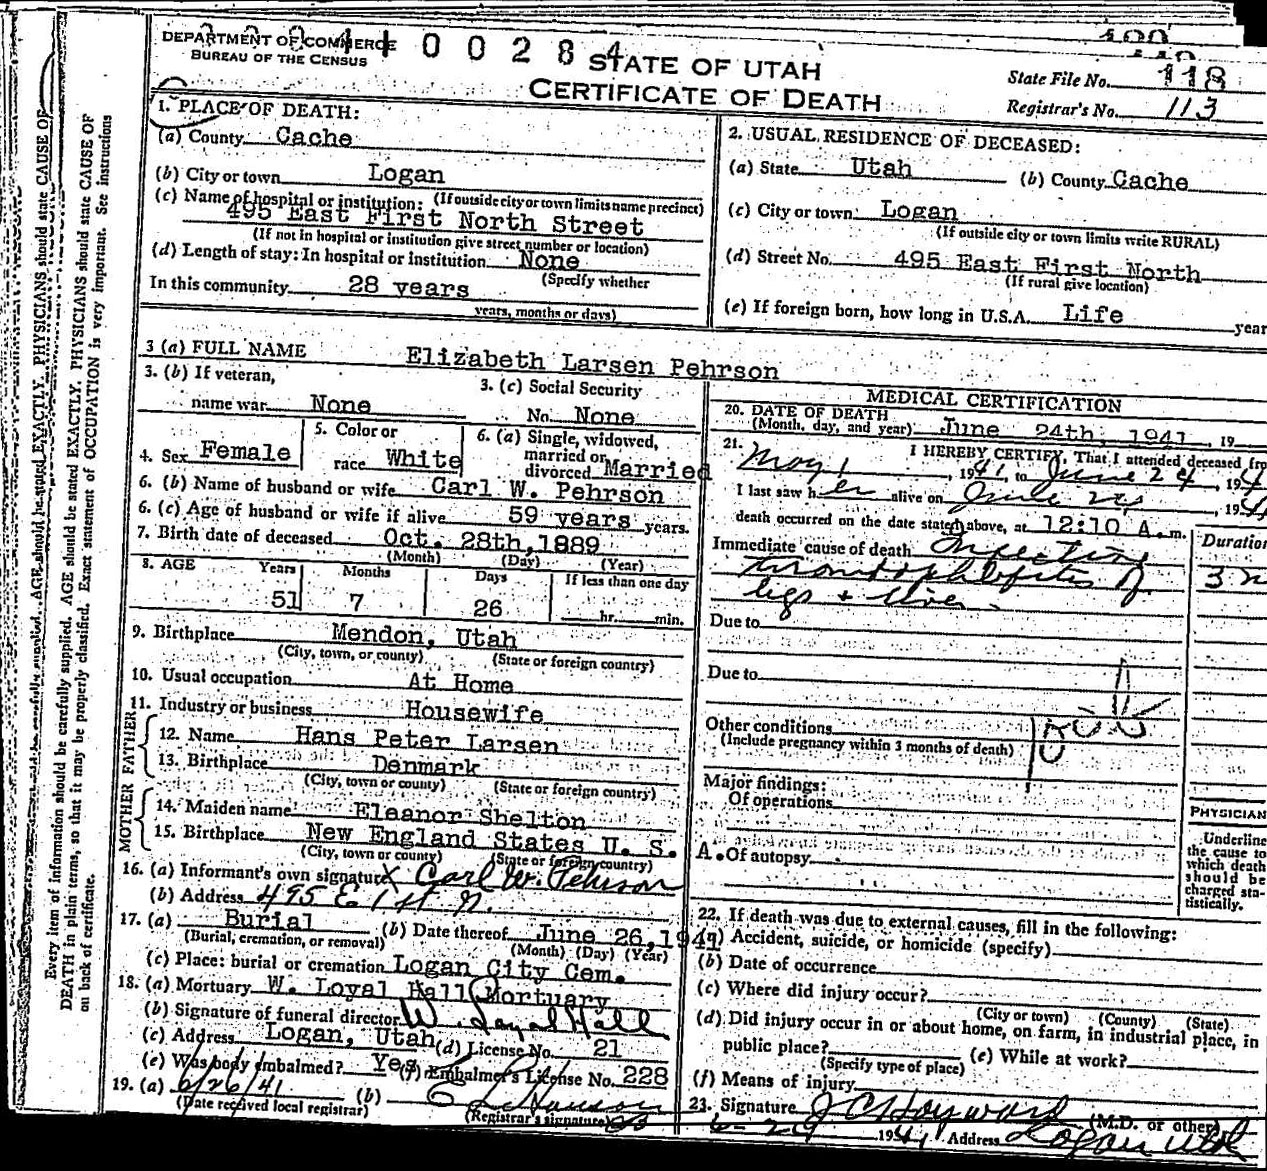 DEPARTMENT OF COMMERCE
BUREAU OF THE CENSUS
0 0 2 8 4
STATE OF UTAH
CERTIFICATE OF DEATH
State File No. 118
Registrar's No. 113
1. PLACE OF DEATH:
(a) County Cache
(b) City or town Logan
(If outside city or town limits name precinct)
(c) Name of hospital or institution:
495 East First North Street
(If not in hospital or institution give street number or location)
(d) Length of stay: In hospital or institution None
(Specify whether
In this community 28 years
years, months or days)
2. USUAL RESIDENCE OF DECEASED:
(a) State Utah (b) County Cache
(c) City or town Logan
(If outside city or town limits write RURAL)
(d) Street No. 495 East First North
(If rural give location)
(e) If foreign born, how long in U.S.A. Life year
3 (a) FULL NAME Elizabeth Larsen Pehrson
3. (b) If veteran,
name war None
3. (c) Social Security
No. None
4. Sex Female
5. Color or
race White
6. (a) Single, widowed,
married or
divorced Married
6. (b) Name of husband or wife Carl W. Pehrson
6. (c) Age of husband or wife if alive 59 years years.
7. Birth date of deceased Oct. 28th, 1889
(Month) (Day) (Year)
8. AGE Years Months Days If less than one day
51 7 26 hr. min.
9. Birthplace Mendon, Utah
(City, town, or county) (State or foreign country)
10. Usual occupation At Home
11. Industry or business Housewife
FATHER
12. Name Hans Peter Larsen
13. Birthplace Denmark
(City, town or county) (State or foreign country)
MOTHER
14. Maiden name Eleanor Shelton
15. Birthplace New England States U. S. A.
(City, town or county) (State or foreign country)
16. (a) Informant's own signature X Carl W. Pehrson
(b) Address 495 E 1st N.
17. (a) Burial (b) Date thereof June 26, 1941
(Burial, cremation, or removal) (Month) (Day) (Year)
(c) Place: burial or cremation Logan City Cem.
18. (a) Mortuary W. Loyal Hall Mortuary
(b) Signature of funeral director W. Loyal Hall
(c) Address Logan, Utah (d) License No. 21
(e) Was body embalmed? Yes (f) Embalmer's License No. 228
19. (a) 6/26/41 (b)
(Date received local registrar) (Registrar's signature)
MEDICAL CERTIFICATION
20. DATE OF DEATH
(Month, day, and year) June 24th, 1941, 19
21. I HEREBY CERTIFY, That I attended deceased fro
May 1, 1941, to June 24, 194
I last saw her alive on June, 194
death occurred on the date stated above, at 12:10 A.m.
Duration
Immediate cause of death Infectious
of 3
legs + liver
Due to
Due to
Other conditions
(Include pregnancy within 3 months of death)
Major findings:
Of operations
Of autopsy
PHYSICIAN
Underline
the cause to
which death
should be
charged sta-
tistically.
22. If death was due to external causes, fill in the following:
(a) Accident, suicide, or homicide (specify)
(b) Date of occurrence
(c) Where did injury occur?
(City or town) (County) (State)
(d) Did injury occur in or about home, on farm, in industrial place, in
public place? (e) While at work?
(Specify type of place)
(f) Means of injury
23. Signature J C Hayward (M.D. or other)
1941 Address Logan Utah
Every item of information should be carefully supplied. AGE should be stated EXACTLY. PHYSICIANS should state CAUSE OF
DEATH in plain terms, so that it may be properly classified. Exact statement of OCCUPATION is very important. See instructions
on back of certificate.